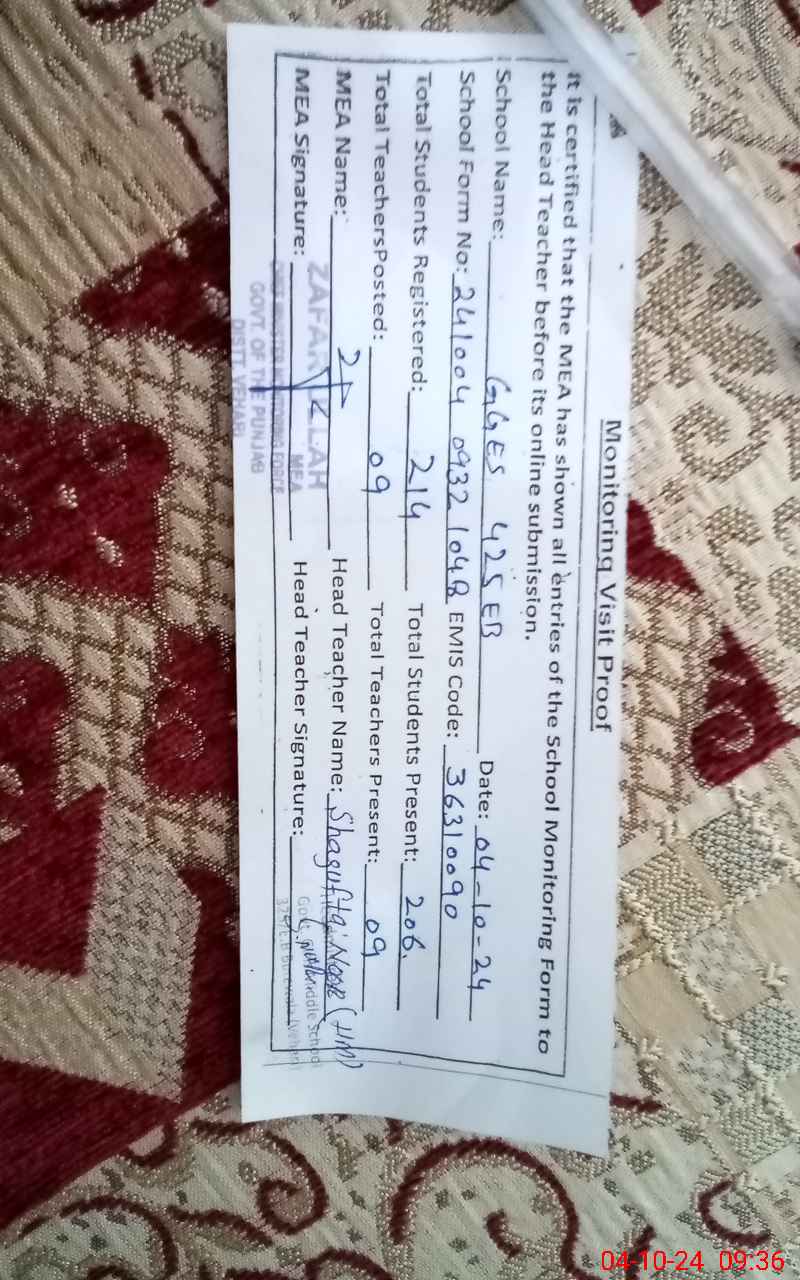 Monitoring Visit Proof
It is certified that the MEA has shown all entries of the School Monitoring Form to
the Head Teacher before its online submission.
School Name: GGES 425 EB Date: 04-10-24
School Form No: 241004 0932 1048 EMIS Code: 36310090
Total Students Registered: 214 Total Students Present: 206.
Total TeachersPosted: 09 Total Teachers Present: 09
MEA Name: Head Teacher Name: Shagufta Noor (HM)
MEA Signature: Head Teacher Signature:
ZAFAR ULLAH
MEA
CHIEF MINISTER MONITORING FORCE
GOVT. OF THE PUNJAB
DISTT. VEHARI
Middle School
E.B Burewala (Vehari)
04-10-24 09:36